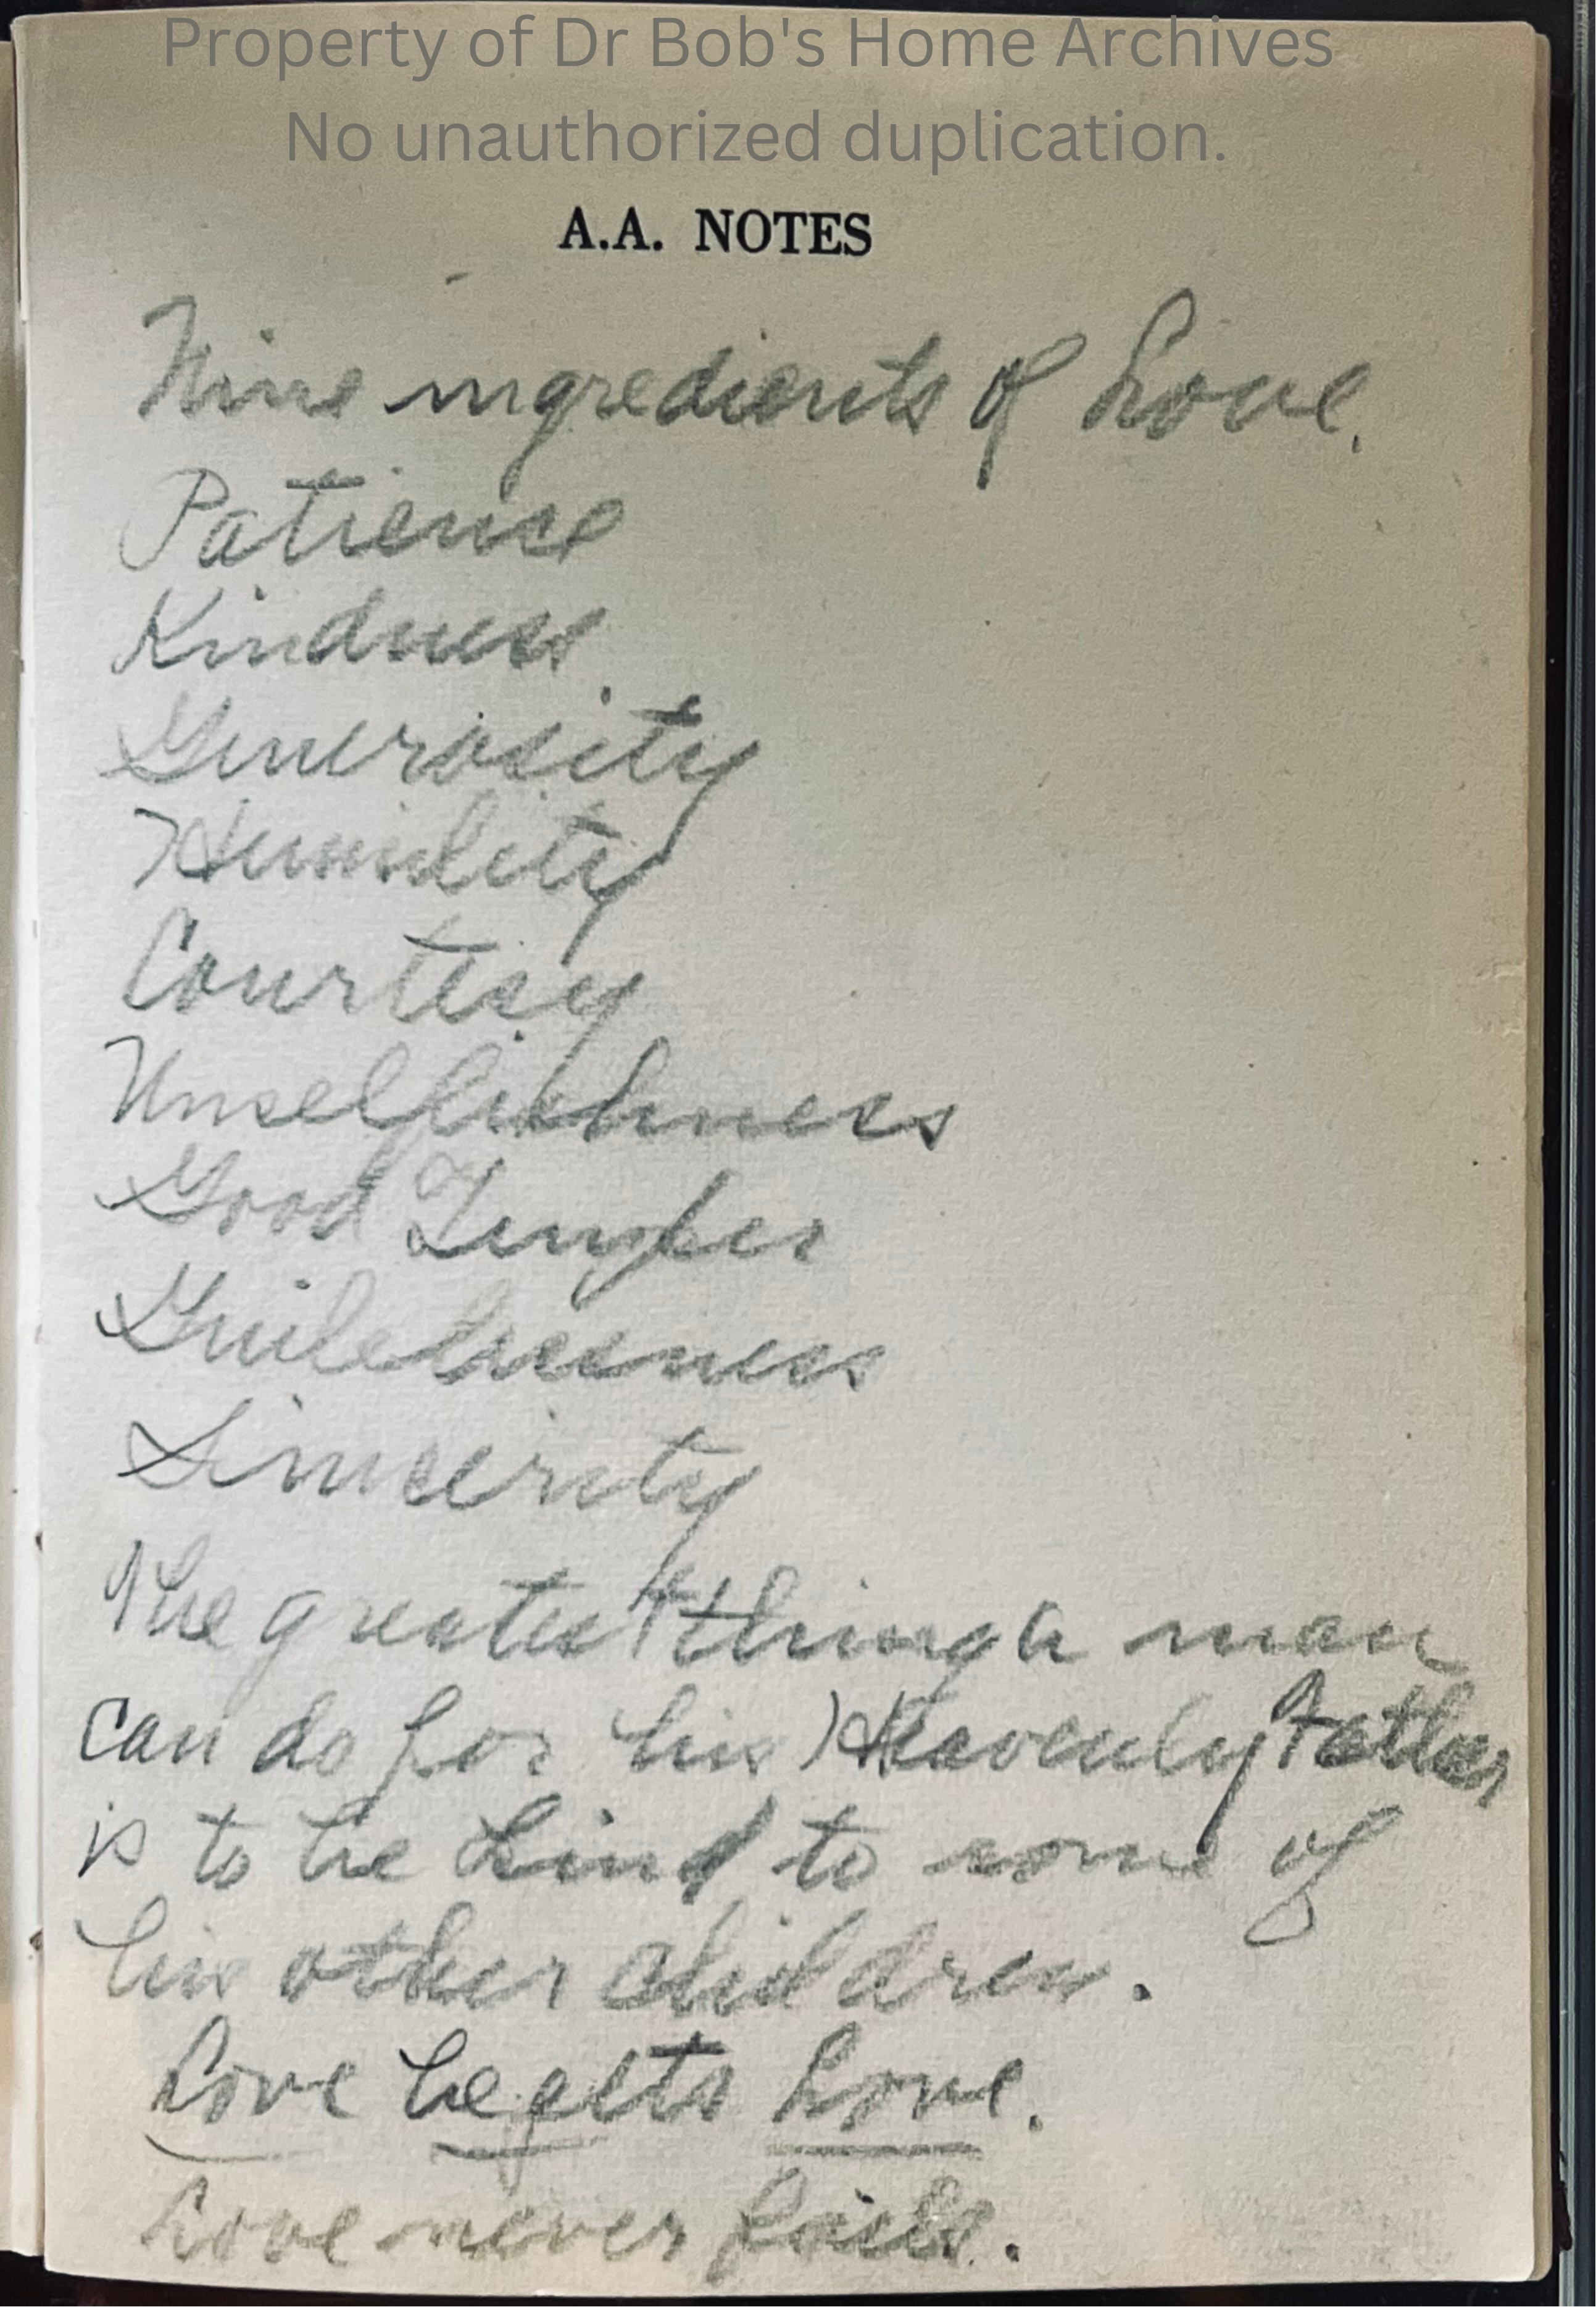 Property of Dr Bob's Home Archives
No unauthorized duplication.
A.A. NOTES
Nine ingredients of Love.
Patience
Kindness
Generosity
Humility
Courtesy
Unselfishness
Good Temper
Guilelessness
Sincerity
The greatest thing a man
can do for his Heavenly Father
is to be kind to some of
his other children.
Love begets Love.
Love never fails.